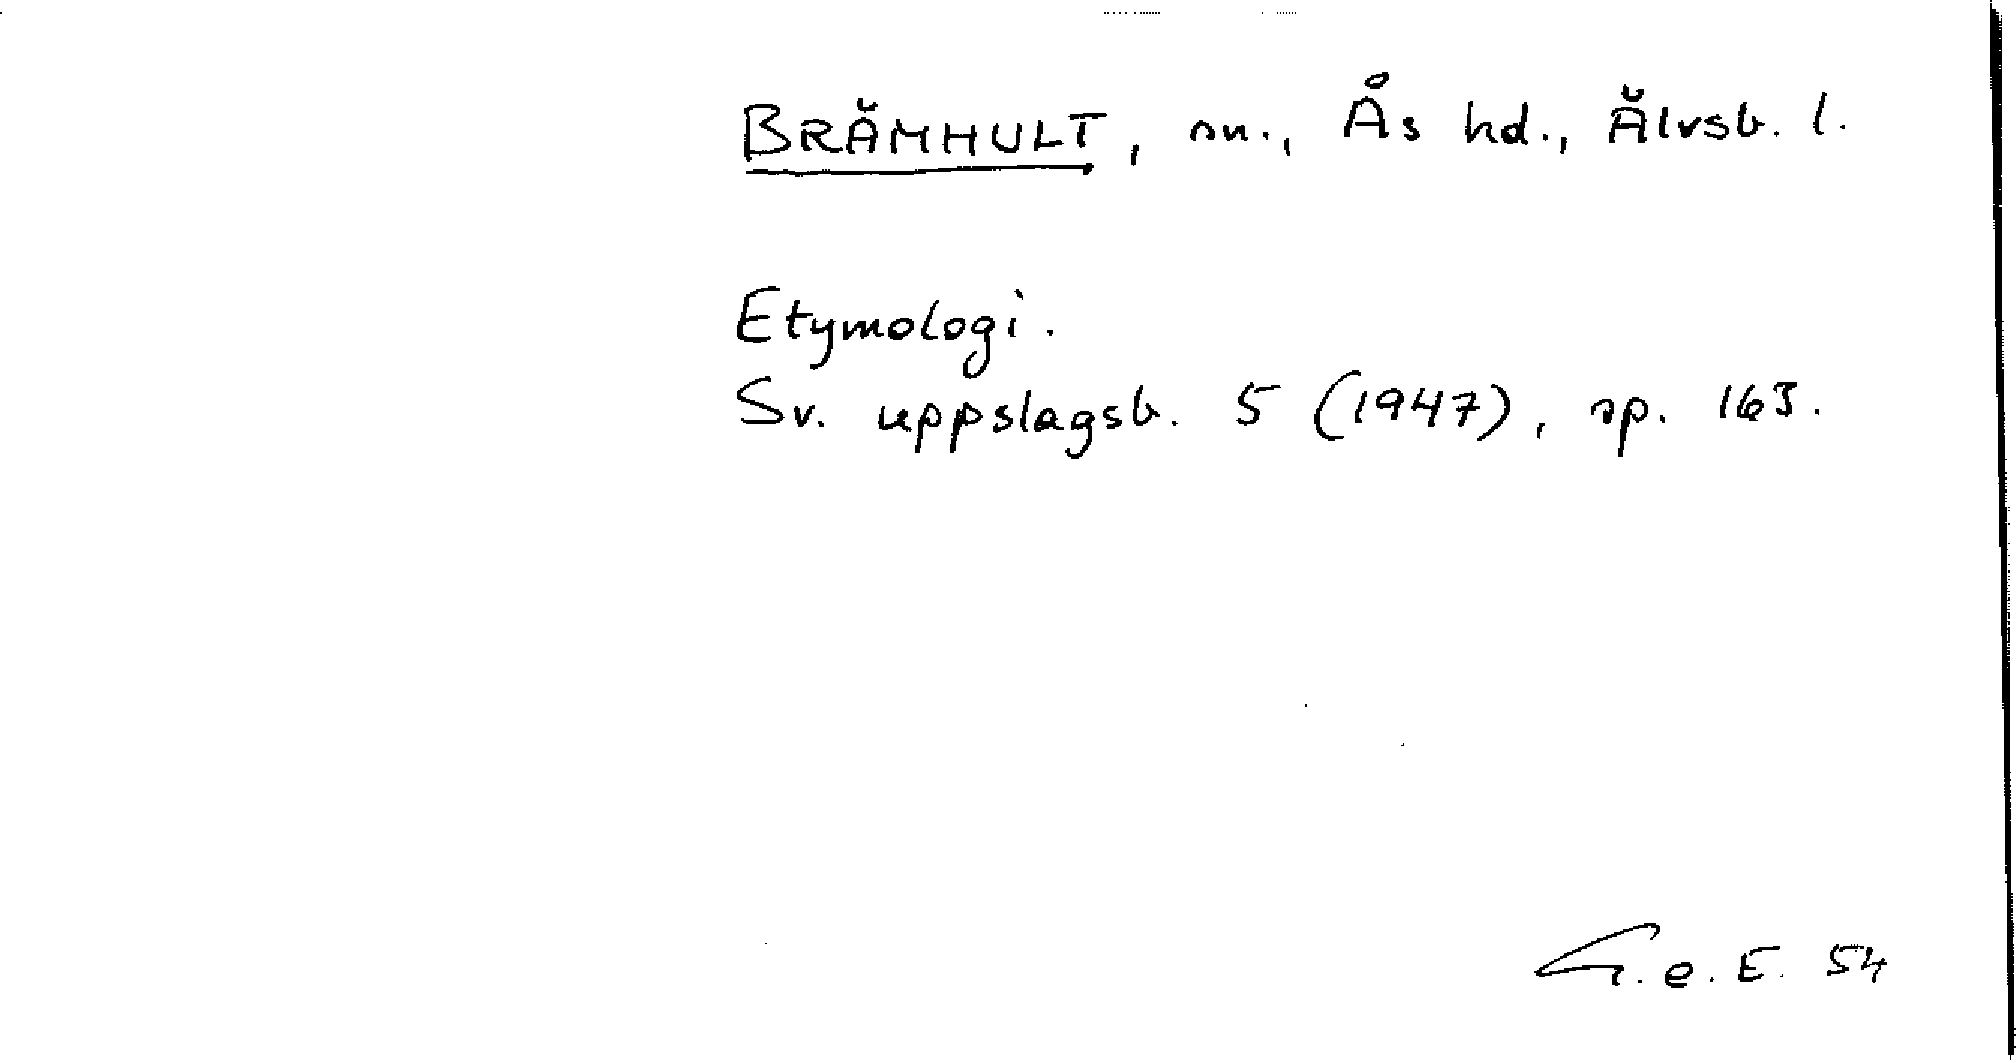 BRÄMHULT, sn., Ås hd., Älvsb. l.
Etymologi.
Sv. uppslagsb. 5 (1947), sp. 163.
G. e. E. 54